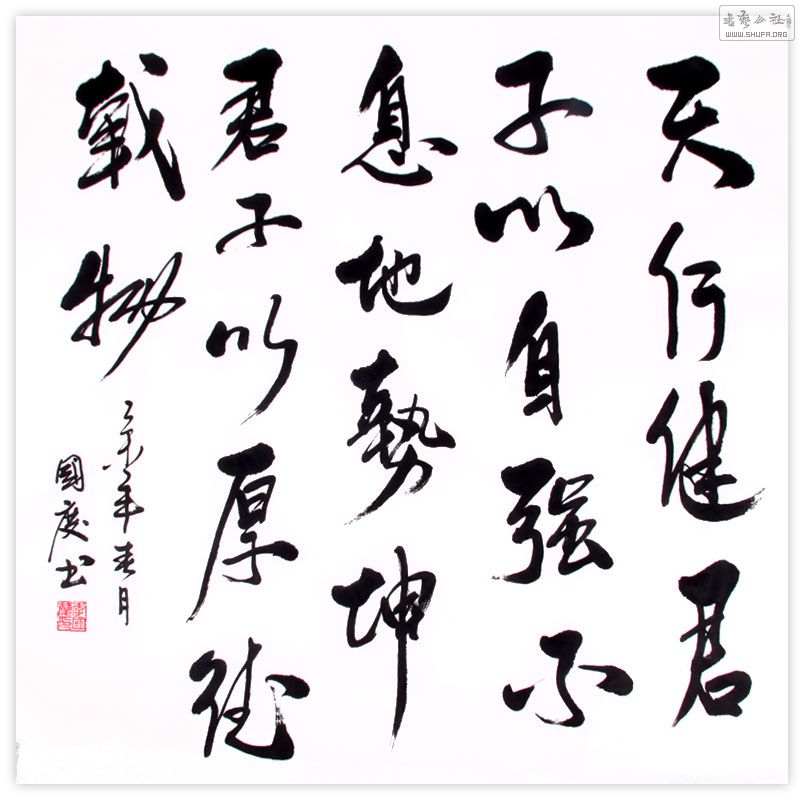 天行健君
子以自强不
息地勢坤
君子以厚德
載物
年春月
國慶书
书艺公社
WWW.SHUFA.ORG